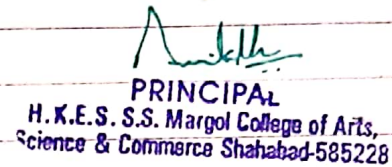 PRINCIPAL
H.K.E.S. S.S. Margol College of Arts,
Science & Commerce Shahabad-585228